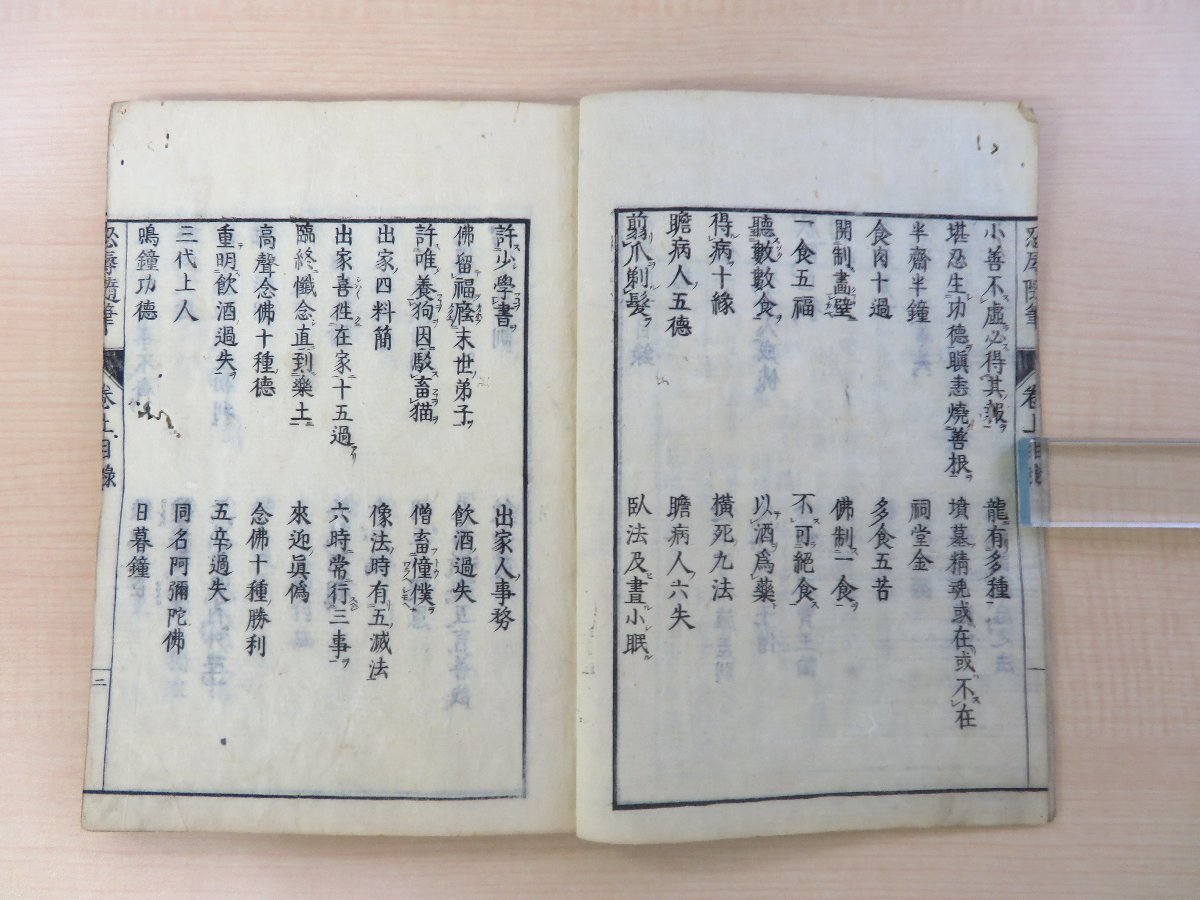 小善不虛必得其報 龍有多種
堪忍生功德瞋恚燒善根 墳墓精魂或在或不在
半齋半鐘 祠堂金
食肉十過 多食五苦
開制畵壁 佛制一食
一食五福 不可絕食
聽數數食 以酒爲藥
得病十緣 橫死九法
瞻病人五德 瞻病人六失
剪爪剃髮 臥法及晝小眠
許少學書 出家人事務
佛留福廕末世弟子 飮酒過失
許唯養狗因駁畜猫 僧畜僮僕
出家四料簡 像法時有五滅法
出家喜徃在家十五過 六時常行三事
臨終懺念直到樂土 來迎眞僞
高聲念佛十種德 念佛十種勝利
重明飮酒過失 五辛過失
三代上人 同名阿彌陀佛
鳴鐘功德 日暮鐘
忍辱隨筆 卷上目錄 二